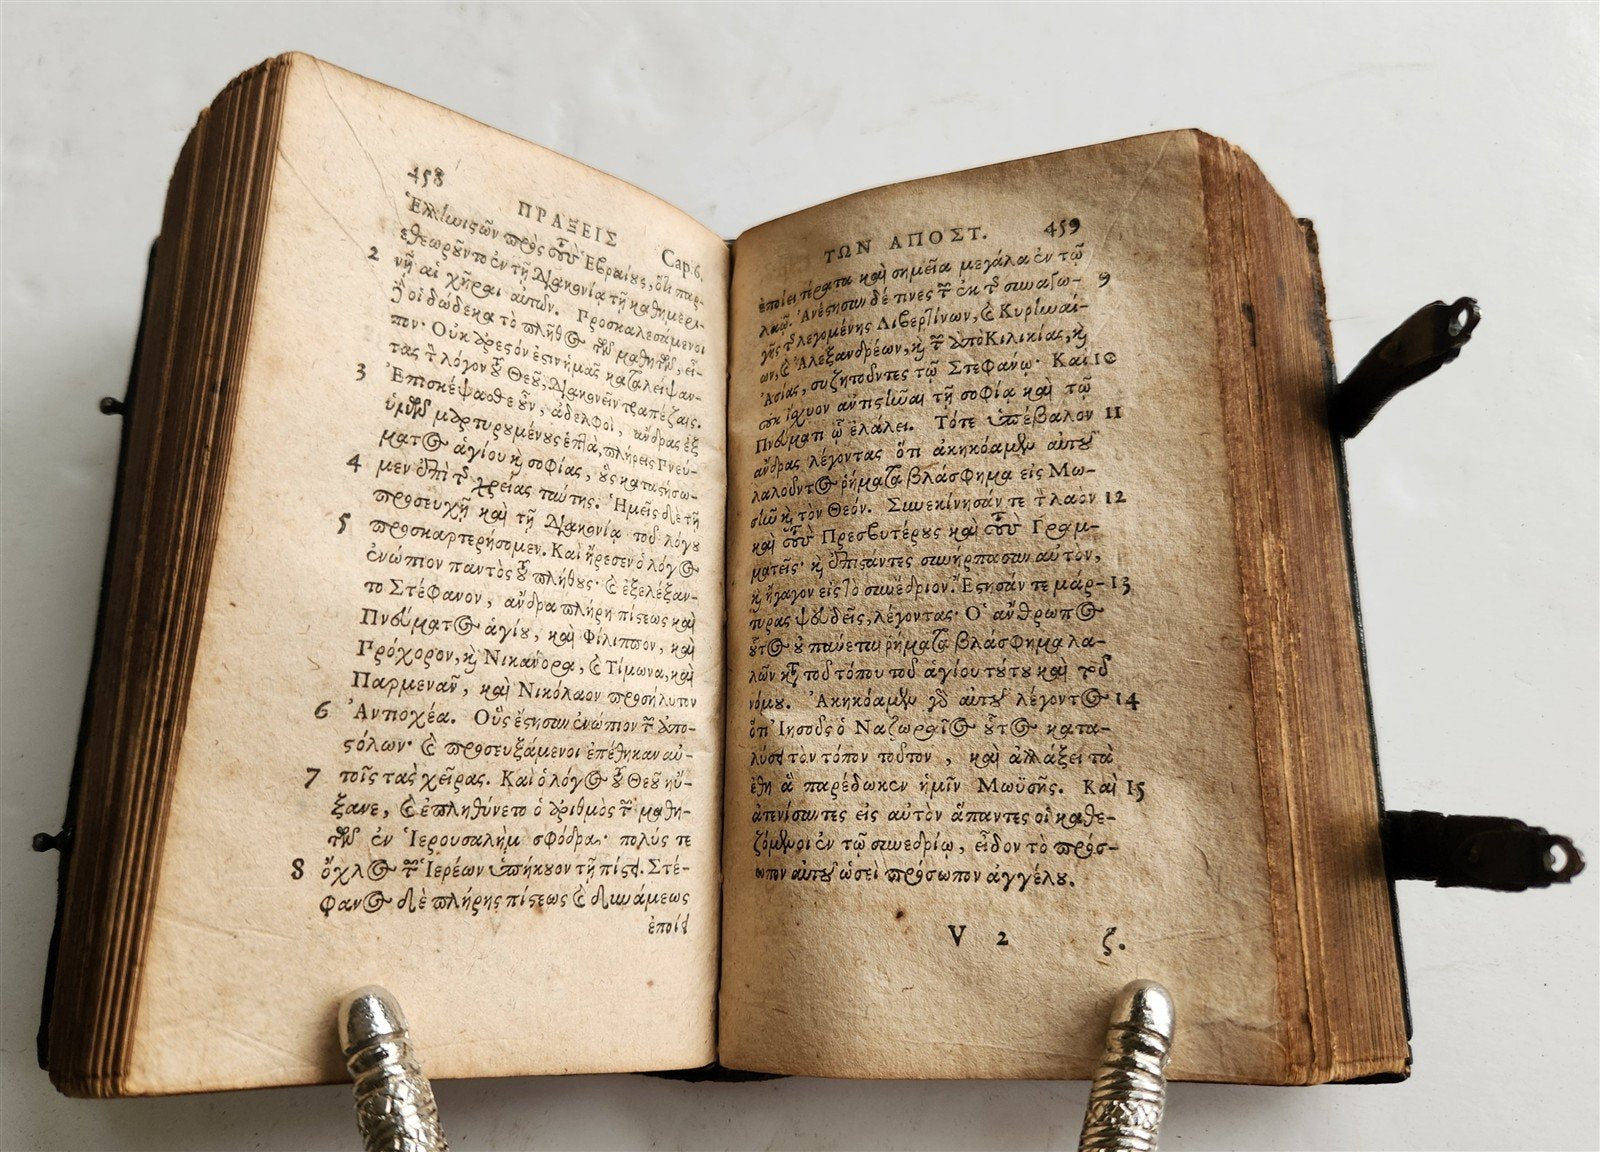 458 ΠΡΑΞΕΙΣ Cap. 6.
Ἑλληνιςῶν πρὸς τοὺς Ἑβραίους, ὅτι παρ-
εθεωροῦντο ἐν τῇ διακονίᾳ τῇ καθημερι-
2 νῇ αἱ χῆραι αὐτῶν. Προσκαλεσάμενοι
δὲ οἱ δώδεκα τὸ πλῆθος τῶν μαθητῶν, εἶ-
πον· Οὐκ ἀρεςόν ἐςιν ἡμᾶς καταλείψαν-
τας τὸν λόγον τοῦ Θεοῦ, διακονεῖν τραπέζαις.
3 Ἐπισκέψασθε οὖν, ἀδελφοὶ, ἄνδρας ἐξ
ὑμῶν μαρτυρουμένους ἑπτὰ, πλήρεις Πνεύ-
ματος ἁγίου καὶ σοφίας, οὓς καταςήσω-
4 μεν ἐπὶ τῆς χρείας ταύτης. Ἡμεῖς δὲ τῇ
προσευχῇ καὶ τῇ διακονίᾳ τοῦ λόγου
5 προσκαρτερήσομεν. Καὶ ἤρεσεν ὁ λόγος
ἐνώπιον παντὸς τοῦ πλήθους· καὶ ἐξελέξαν-
το Στέφανον, ἄνδρα πλήρη πίςεως καὶ
Πνεύματος ἁγίου, καὶ Φίλιππον, καὶ
Πρόχορον, καὶ Νικάνορα, καὶ Τίμωνα, καὶ
Παρμενᾶν, καὶ Νικόλαον προσήλυτον
6 Ἀντιοχέα. Οὓς ἔςησαν ἐνώπιον τῶν ἀπο-
ςόλων· καὶ προσευξάμενοι ἐπέθηκαν αὐ-
7 τοῖς τὰς χεῖρας. Καὶ ὁ λόγος τοῦ Θεοῦ ηὔ-
ξανε, καὶ ἐπληθύνετο ὁ ἀριθμὸς τῶν μαθη-
τῶν ἐν Ἱερουσαλὴμ σφόδρα· πολύς τε
8 ὄχλος τῶν Ἱερέων ὑπήκουον τῇ πίςει. Στέ-
φανος δὲ πλήρης πίςεως καὶ δυνάμεως
ἐποίει
ΤΩΝ ΑΠΟΣΤ. 459
ἐποίει τέρατα καὶ σημεῖα μεγάλα ἐν τῷ
λαῷ. Ἀνέςησαν δέ τινες τῶν ἐκ τῆς συναγω- 9
γῆς τῆς λεγομένης Λιβερτίνων, καὶ Κυρηναί-
ων, καὶ Ἀλεξανδρέων, καὶ τῶν ἀπὸ Κιλικίας, καὶ
Ἀσίας, συζητοῦντες τῷ Στεφάνῳ· Καὶ 10
οὐκ ἴχυον ἀντιςῆναι τῇ σοφίᾳ καὶ τῷ
Πνεύματι ᾧ ἐλάλει. Τότε ὑπέβαλον 11
ἄνδρας λέγοντας ὅτι ἀκηκόαμεν αὐτοῦ
λαλοῦντος ῥήματα βλάσφημα εἰς Μω-
σῆν καὶ τὸν Θεόν. Συνεκίνησάν τε τὸν λαὸν 12
καὶ τοὺς Πρεσβυτέρους καὶ τοὺς Γραμ-
ματεῖς· καὶ ἐπιςάντες συνήρπασαν αὐτὸν,
καὶ ἤγαγον εἰς τὸ συνέδριον. Ἔςησάν τε μάρ- 13
τυρας ψευδεῖς, λέγοντας· Ὁ ἄνθρωπος
οὗτος οὐ παύεται ῥήματα βλάσφημα λα-
λῶν κατὰ τοῦ τόπου τοῦ ἁγίου τούτου καὶ τοῦ
νόμου. Ἀκηκόαμεν γὰρ αὐτοῦ λέγοντος 14
ὅτι Ἰησοῦς ὁ Ναζωραῖος οὗτος κατα-
λύσει τὸν τόπον τοῦτον, καὶ ἀλλάξει τὰ
ἔθη ἃ παρέδωκεν ἡμῖν Μωϋσῆς. Καὶ 15
ἀτενίσαντες εἰς αὐτὸν ἅπαντες οἱ καθε-
ζόμενοι ἐν τῷ συνεδρίῳ, εἶδον τὸ πρόσ-
ωπον αὐτοῦ ὡσεὶ πρόσωπον ἀγγέλου.
V 2 ζ.